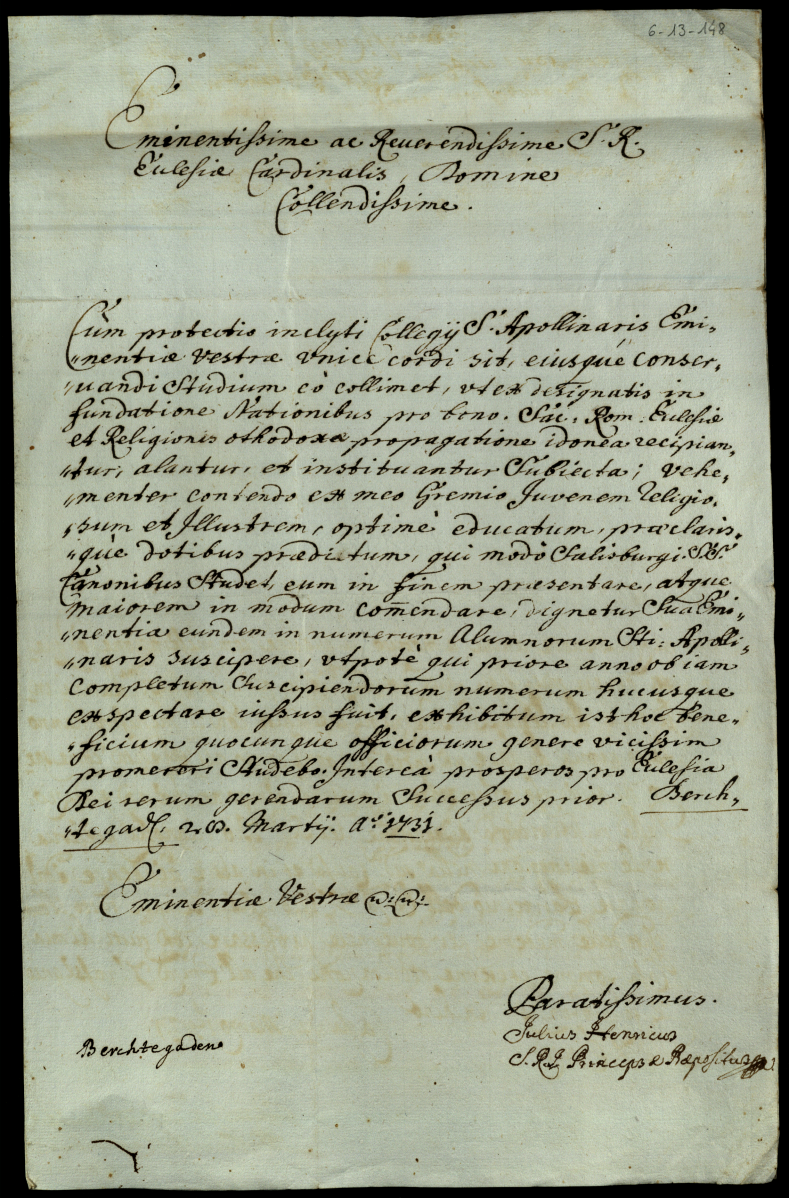 6-13-148
Eminentissime ac Reuerendissime S. R.
Eclesiæ Cardinalis, Domine
Collendissime.
Cùm protectio inclyti Collegij S. Apollinaris Emi„
„nentiæ Vestræ vnicè cordi sit, eiusqué conser„
„uandi Studium eò collimet, vt ex designatis in
fundatione Nationibus pro bono. Sac: Rom. Eclesiæ
et Religionis othodoxæ propagatione idonea recipian„
„tur, alantur, et instituantur Subiecta; vehe„
„menter contendo ex meo Gremio Juvenem Religio„
„sum et Jllustrem, optimè educatum, præclaris„
„què dotibus præditum, qui modò Salisburgi SS.
Canonibus Studet, eum in finem præsentare, atque
maiorem in modum com̄endare, dignetur Sua Emi„
„nentia eundem in numerum Alumnorum Sti: Apolli„
„naris suscipere, vtpotè qui priore anno ob iam
completum Suscipiendorum numerum hucusque
exspectare iussus fuit, exhibitum isthoc bene„
„ficium quocunque officiorum genere vicissim
promereri Studebo. Intereà prosperos pro Eclesia
Dei rerum gerendarum Successus prior. Berch„
„tegad. Martij. Aº 1731.
Eminentiæ Vestræ
Paratissimus.
Julius Henricus
S. R. J. Princeps & Præpositus
Berchtegaden